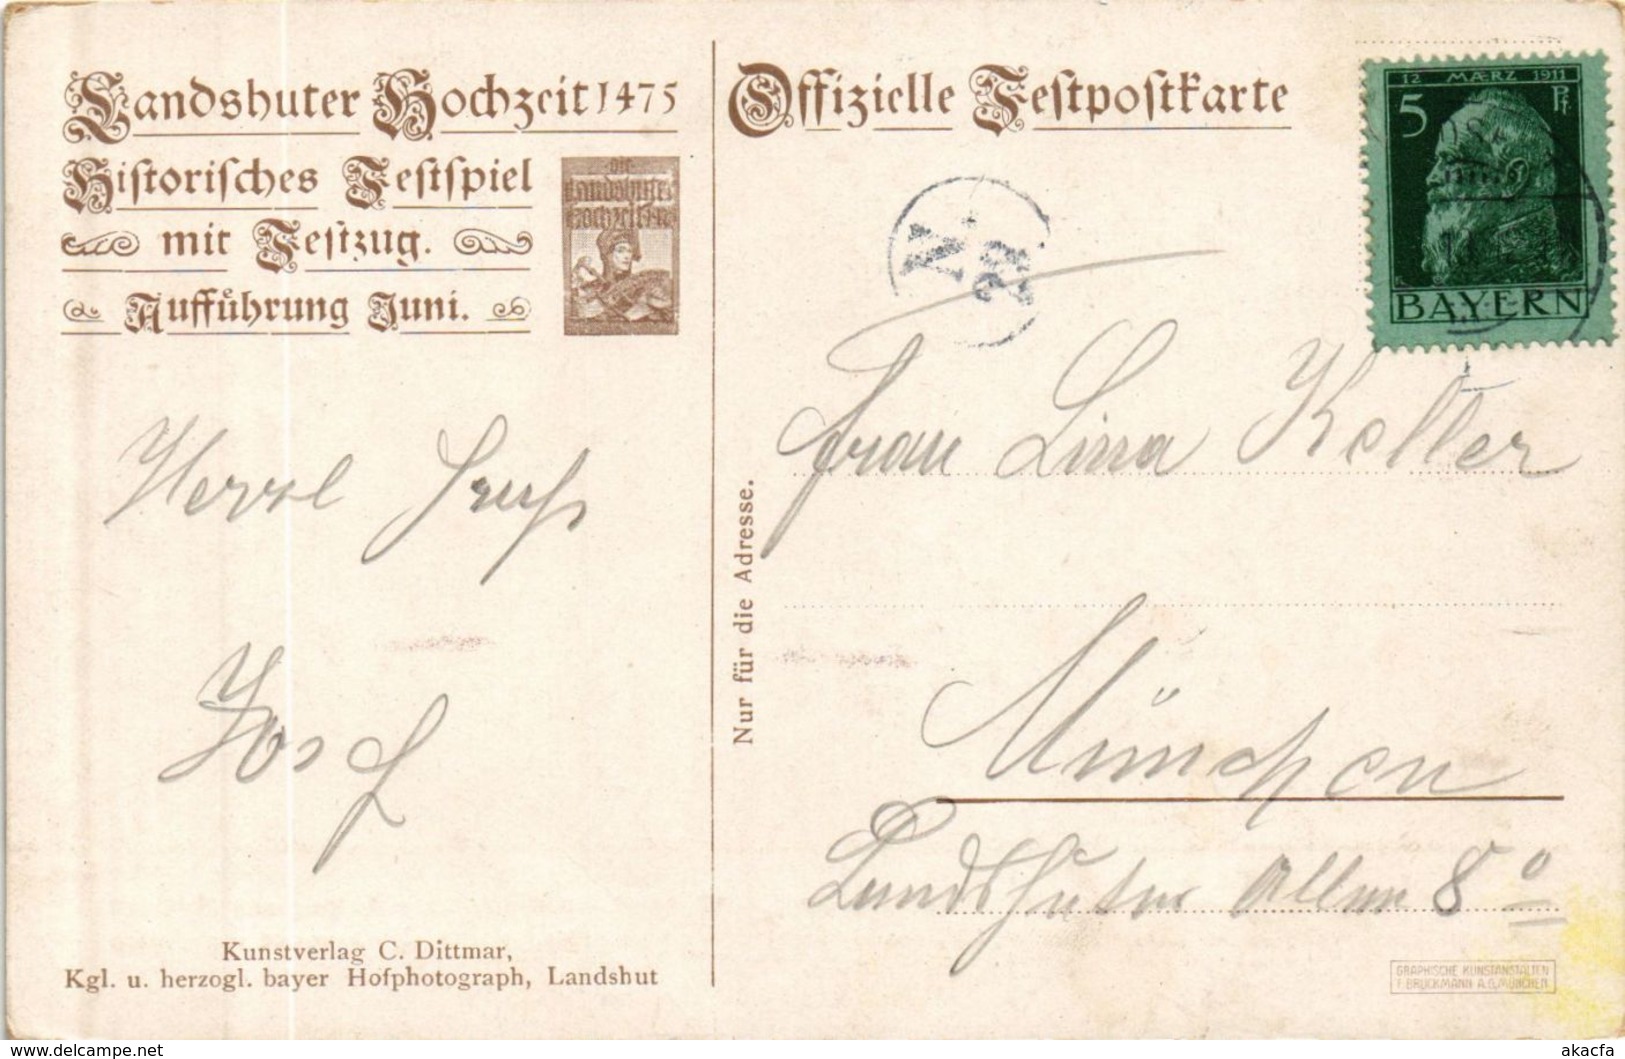 Landshuter Hochzeit 1475
Historisches Festspiel
mit Festzug.
Aufführung Juni.
die
Landshuter
Hochzeit 1475
Offizielle Festpostkarte
12 MÆRZ 1911
5 Pf.
BAYERN
N.
Frau Lina Keller
München
Landshuter Allee 8 0
Herzl Gruß
Josef
Nur für die Adresse.
Kunstverlag C. Dittmar,
Kgl. u. herzogl. bayer Hofphotograph, Landshut
GRAPHISCHE KUNSTANSTALTEN
F. BRUCKMANN A.G. MÜNCHEN
delcampe.net
akacfa